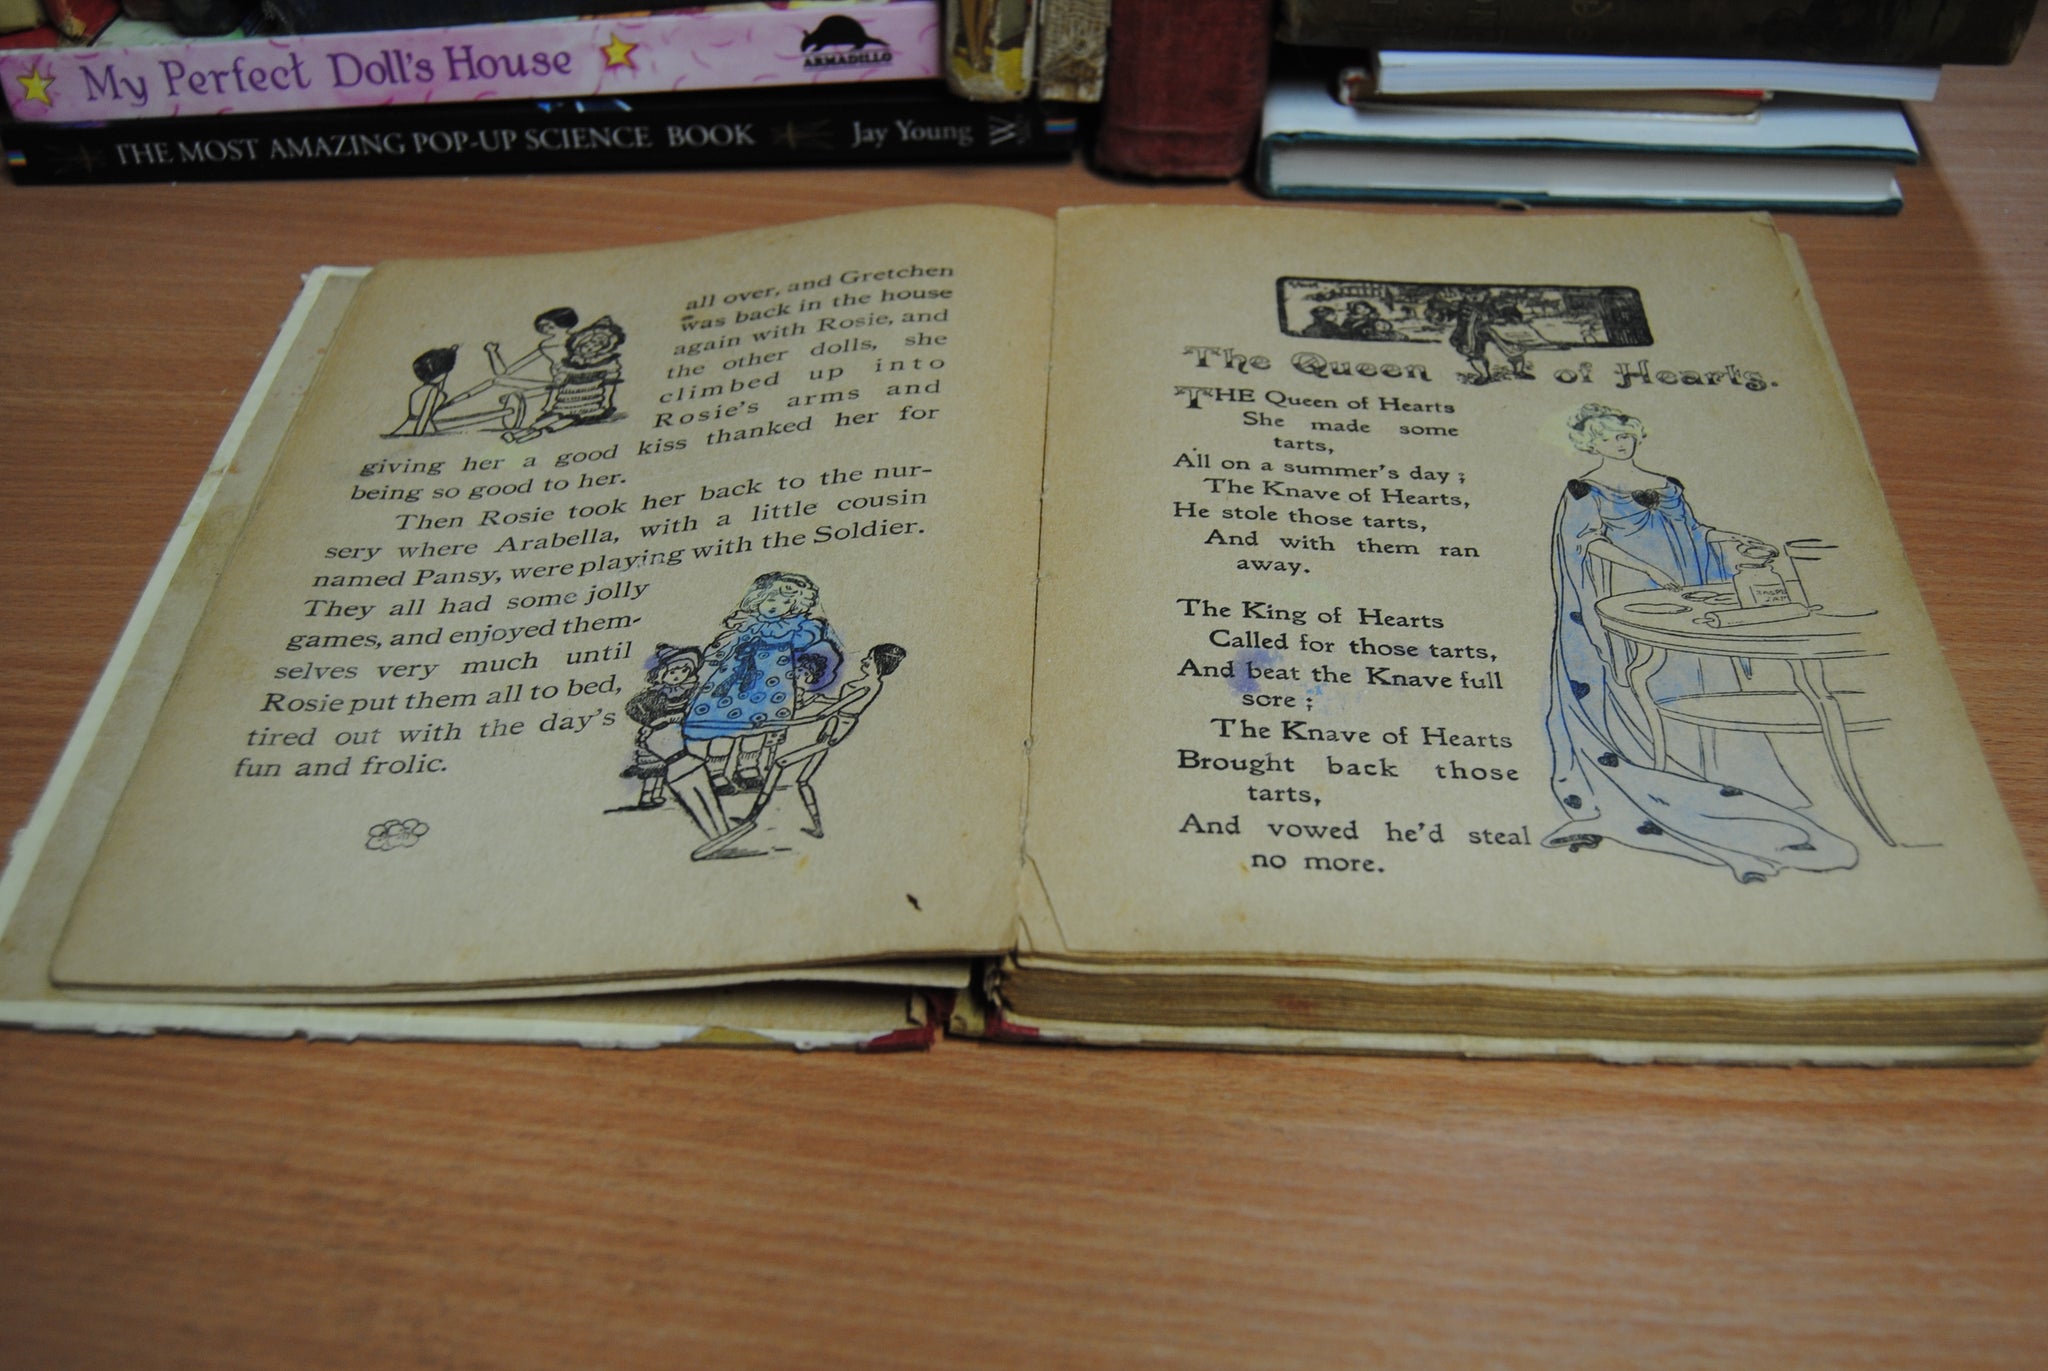 My Perfect Doll's House
ARMADILLO
THE MOST AMAZING POP-UP SCIENCE BOOK Jay Young W
all over, and Gretchen
was back in the house
again with Rosie, and
the other dolls, she
climbed up into
Rosie's arms and
giving her a good kiss thanked her for
being so good to her.
Then Rosie took her back to the nur-
sery where Arabella, with a little cousin
named Pansy, were playing with the Soldier.
They all had some jolly
games, and enjoyed them-
selves very much until
Rosie put them all to bed,
tired out with the day's
fun and frolic.
The Queen of Hearts.
THE Queen of Hearts
She made some
tarts,
All on a summer's day;
The Knave of Hearts,
He stole those tarts,
And with them ran
away.
The King of Hearts
Called for those tarts,
And beat the Knave full
sore;
The Knave of Hearts
Brought back those
tarts,
And vowed he'd steal
no more.
JAM